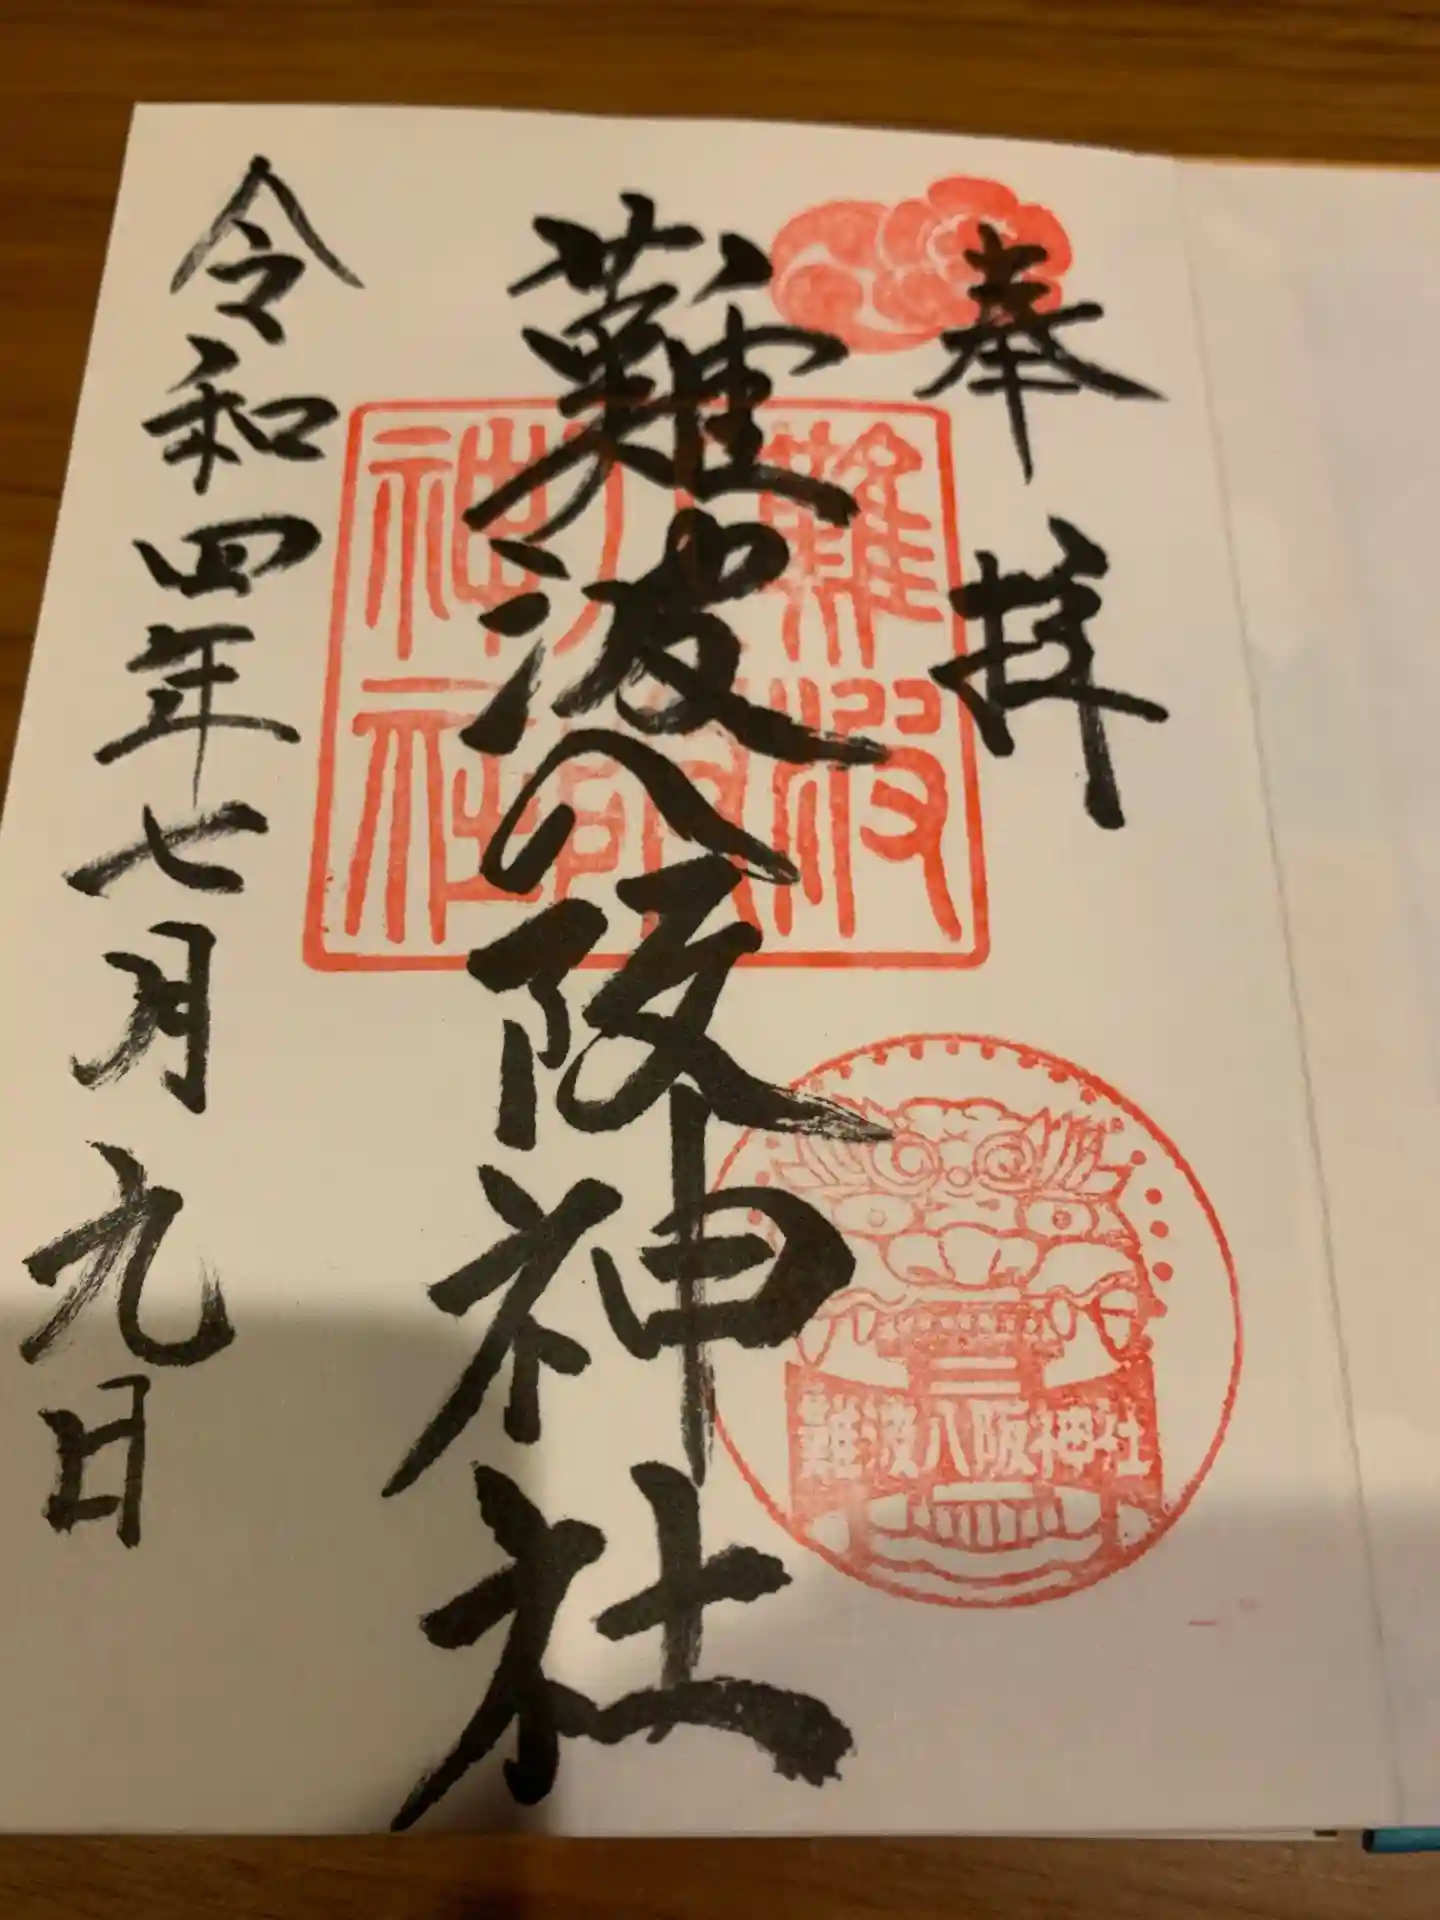 奉拝
難波八阪神社
令和四年七月九日
難波八阪神社
難波八阪神社